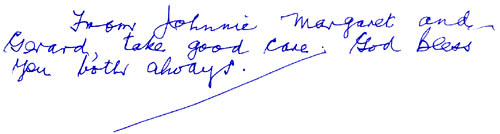 From Johnnie Margaret and
Gerard, take good care. God bless
you both always.